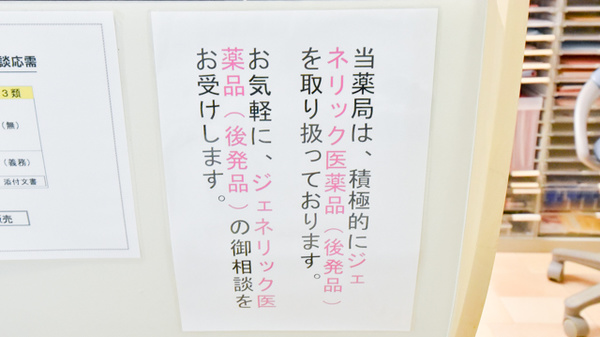 当薬局は、積極的にジェ
ネリック医薬品（後発品）
を取り扱っております。
お気軽に、ジェネリック医
薬品（後発品）の御相談を
お受けします。
談応需
３類
（無）
（義務）
添付文書
売